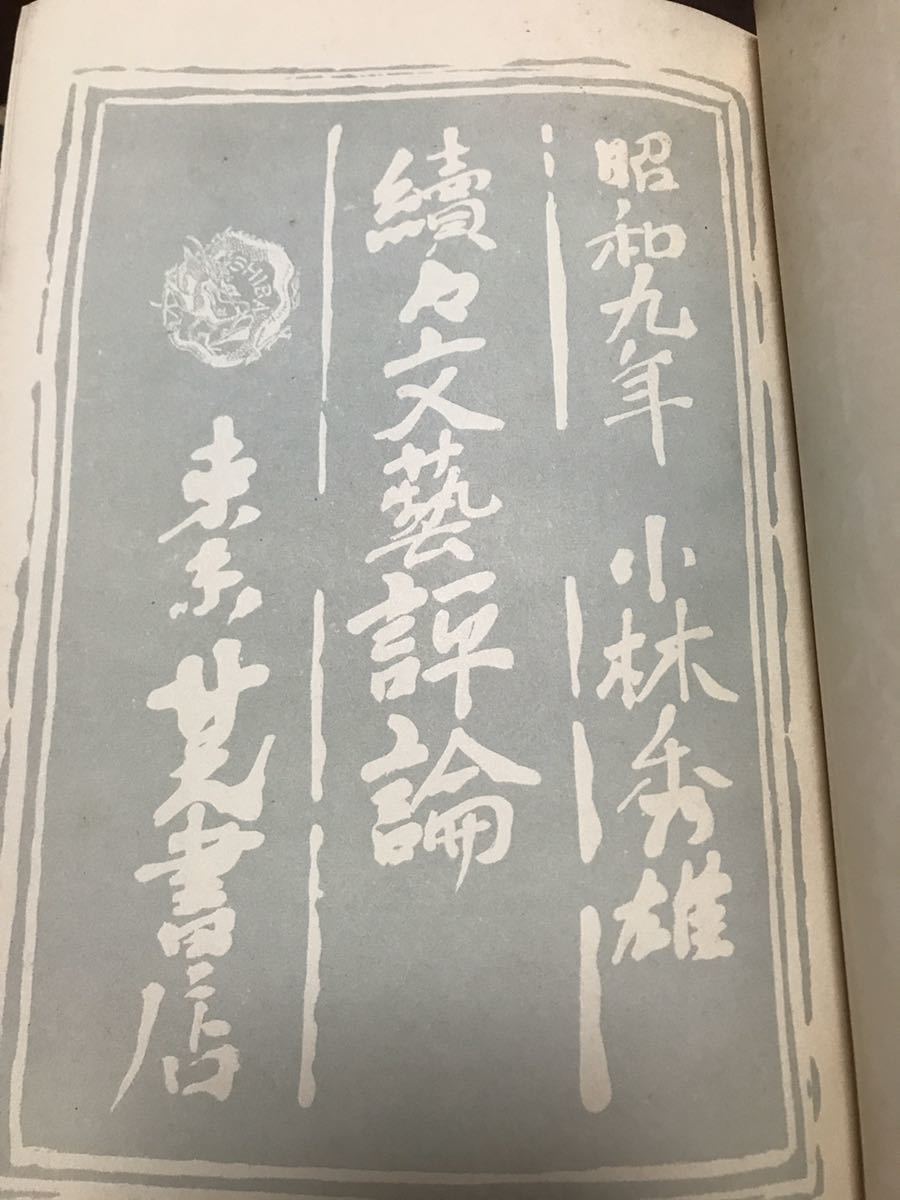 昭和九年 小林秀雄
續々文藝評論
SHIBA
東京 芝書店